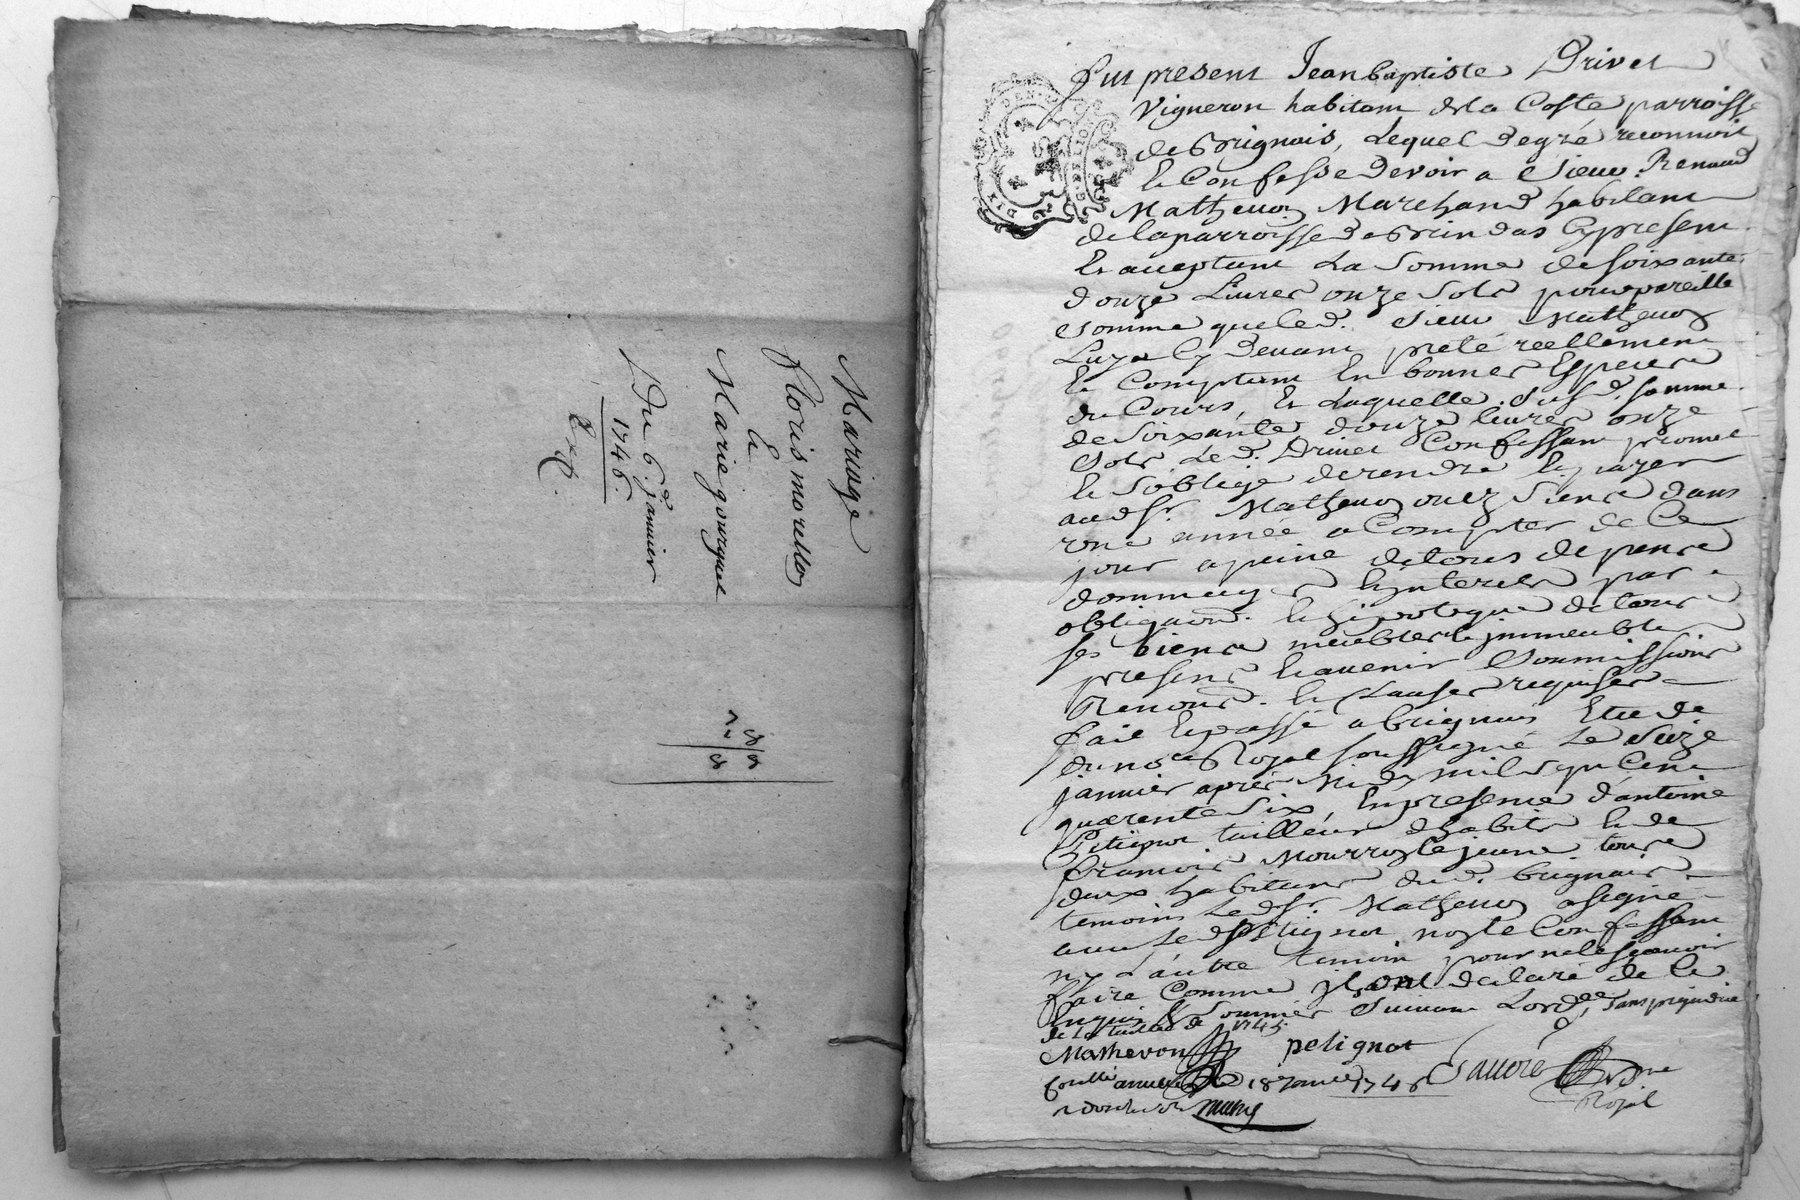 Mariage
floris morellon
Et
Marie gourguet
Du 6e. janvier
1746.
fut present Jean baptiste Drivet
Vigneron habitant de la Coste parroisse
de Brignais, Lequel de gré reconnoit
Et Confesse devoir a Sieur Renaud
Mathevon Marchand habitant
de la parroisse de Brindas Cy present
Et aceptant La Somme de Soixante
douze Livres onze Sols pour pareille
Somme que led. Sieur Mathevon
Luy a Cy devant preté réellement
Et Comptant En bonnes Especes
du Cours, Et Laquelle dusd. Somme
de Soixante douze livres onze
Sols Led. Drivet Confessant promet
Et S'oblige de rendre Et payer
audsr. Mathevon ou ez Siens dans
une année a Compter de Ce
jour a peine de tous depens
dommages Et interets par
obligaon. Et hipoteque de tous
ses biens meubles Et jmmeubles
presens Et avenir Soumissions
Renons. Et Clauses requises
fait Et passé a brignais Etude
du nore. Royal soussigné Le Size
janvier après Midy mil Sept Cent
quarente Six, En presence d'antoine
Petignot tailleur d'habits Et de
francois Mourron le jeune tous
deux habitans dud. brignais
temoins Ledsr. Mathevon a signé
avec Led. Petignot non le Confessant
ny L'autre temoin pour ne le sçavoir
faire Comme jls ont declaré de Ce
Enquis & Sommés Suivant Lordce, Sans prejudice
de la taille de 1745.
Mathevon petignot
Sauvore nre
Royal
Conllé 18 janvier 1746